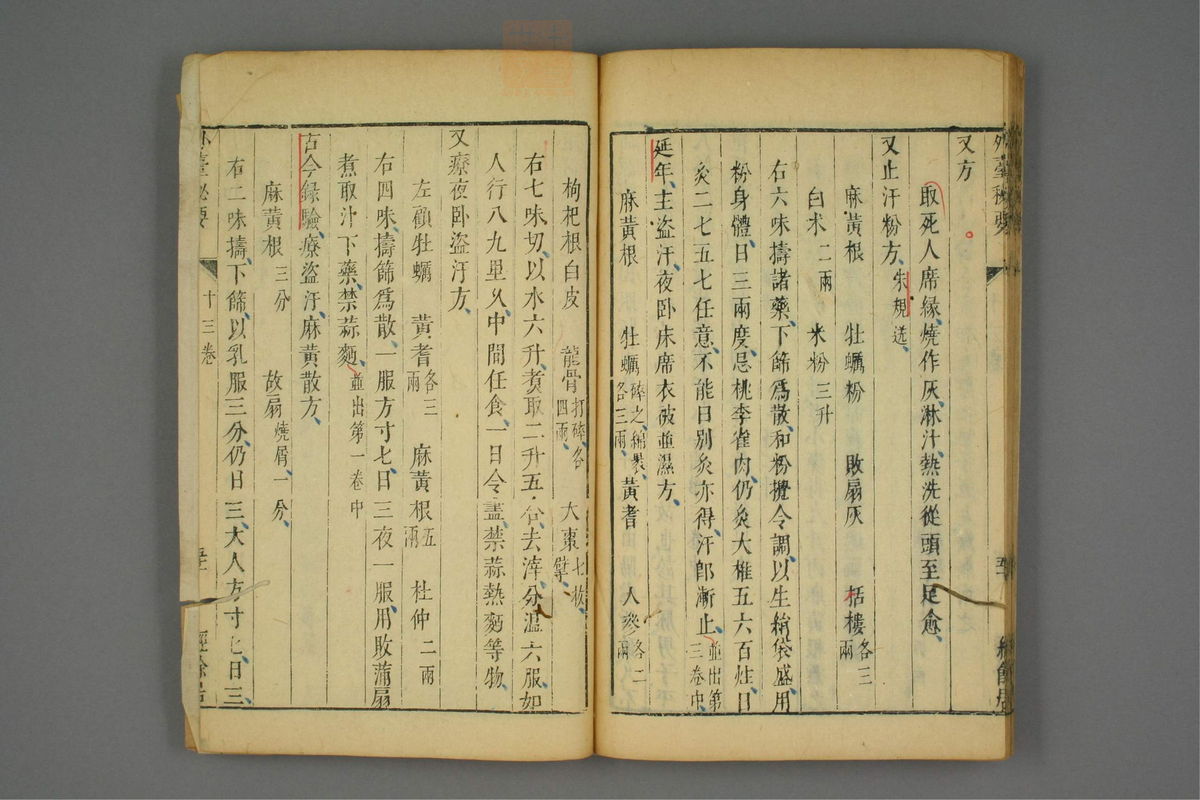 又方
取死人席縁燒作灰淋汁熱洗從頭至足愈
又止汗粉方朱規送
麻黃根 牡蠣粉 敗扇灰 栝樓各三兩
白术二兩 米粉三升
右六味擣諸藥下篩爲散和粉攪令調以生絹袋盛用
粉身體日三兩度忌桃李雀肉仍灸大椎五六百炷日
灸二七五七任意不能日別灸亦得汗即漸止並出第三卷中
延年主盜汗夜卧床席衣被並濕方
麻黃根 牡蠣碎之綿裹各三兩 黃耆 人參各二兩
枸杞根白皮 龍骨打碎各四兩 大棗七枚擘
右七味切以水六升煑取二升五合去滓分溫六服如
人行八九里久中間任食一日令盡禁蒜熱麪等物
又療夜卧盜汗方
左顧牡蠣 黃耆各三兩 麻黃根五兩 杜仲二兩
右四味擣篩爲散一服方寸匕日三夜一服用敗蒲扇
煮取汁下藥禁蒜麪並出第一卷中
古今録驗療盜汗麻黃散方
麻黃根三分 故扇燒屑一分
右二味擣下篩以乳服三分仍日三大人方寸匕日三
外臺秘要 十三卷